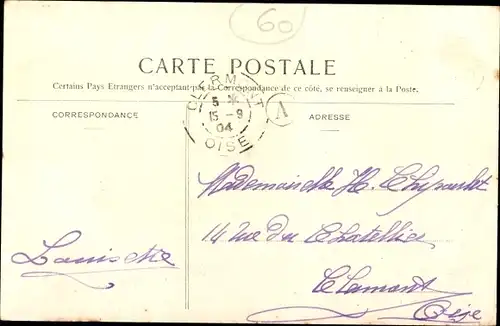 60
CARTE POSTALE
Certains Pays Etrangers n'acceptant pas la Correspondance de ce côté, se renseigner à la Poste.
CORRESPONDANCE
ADRESSE
CLERMONT
5 *
15 - 9
04
OISE
A
Mademoiselle H.
14 rue du Chatellier
Clermont
Oise
Louisette